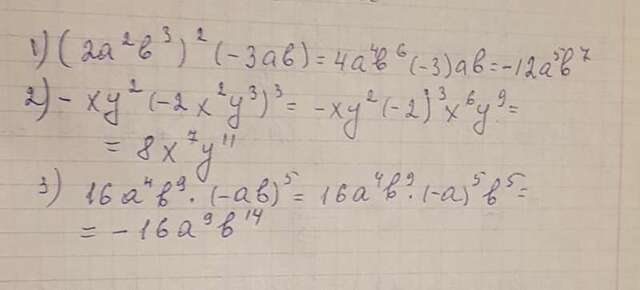 1) (2a²b³)²(-3ab)=4a⁴b⁶(-3)ab=-12a⁵b⁷
2) - xy²(-2x²y³)³= -xy²(-2)³x⁶y⁹=
= 8x⁷y¹¹
3) 16a⁴b⁹·(-ab)⁵=16a⁴b⁹·(-a)⁵b⁵=
= -16a⁹b¹⁴